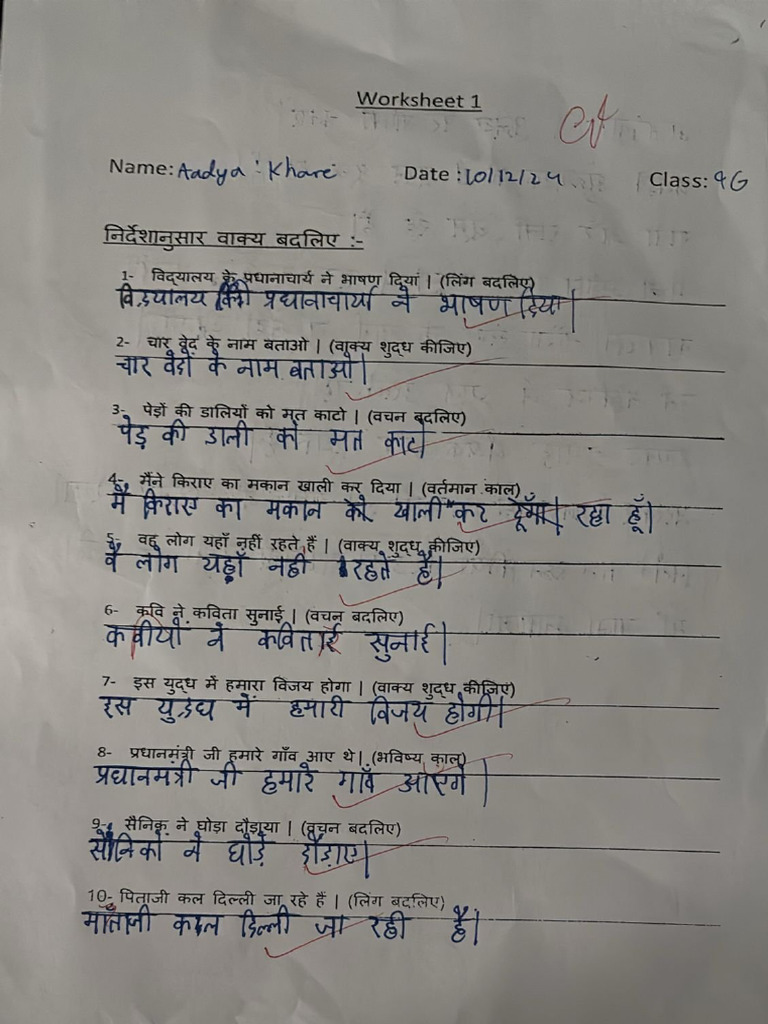 Worksheet 1
Name: Aadya Khare Date : 10/12/24 Class: 9G
निर्देशानुसार वाक्य बदलिए :-
1- विद्यालय के प्रधानाचार्य ने भाषण दिया | (लिंग बदलिए)
विद्यालय की प्रधानाचार्या ने भाषण दिया|
2- चार वेद के नाम बताओ | (वाक्य शुद्ध कीजिए)
चार वेदों के नाम बताओ|
3- पेड़ों की डालियों को मत काटो | (वचन बदलिए)
पेड़ की डाली को मत काटो|
4- मैंने किराए का मकान खाली कर दिया | (वर्तमान काल)
मैं किराए का मकान खाली कर रहा हूँ|
5- वह लोग यहाँ नहीं रहते हैं | (वाक्य शुद्ध कीजिए)
वे लोग यहाँ नही रहते है|
6- कवि ने कविता सुनाई | (वचन बदलिए)
कवीयों ने कविताई सुनाई|
7- इस युद्ध में हमारा विजय होगा | (वाक्य शुद्ध कीजिए)
इस युद्ध में हमारी विजय होगी|
8- प्रधानमंत्री जी हमारे गाँव आए थे | (भविष्य काल)
प्रधानमंत्री जी हमारे गाँव आएंगे |
9- सैनिक ने घोड़ा दौड़ाया | (वचन बदलिए)
सैनिकों ने घोड़े दौड़ाए|
10- पिताजी कल दिल्ली जा रहे हैं | (लिंग बदलिए)
माताजी कल दिल्ली जा रही हैं|